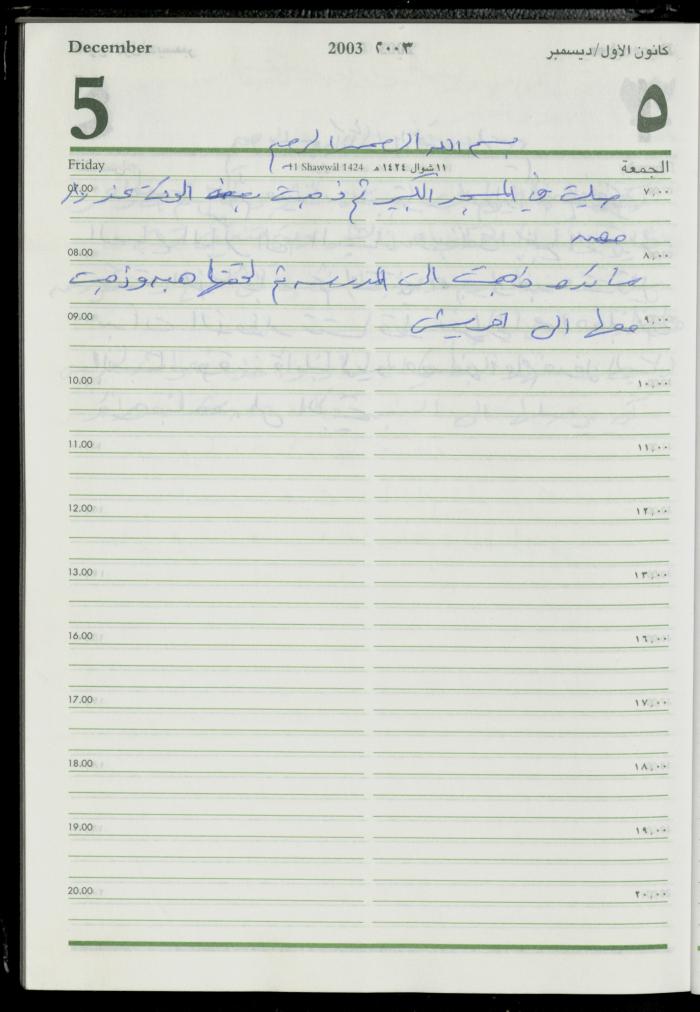 December 2003 ٢٠٠٣ كانون الأول/ديسمبر
5 ٥
بسم الله الرحمن الرحيم
Friday 11 Shawwāl 1424 ١١ شوال ١٤٢٤ هـ الجمعة
07.00 صليت في المسجد الكبير ثم ذهبت بعض الوقت عند ٧,٠٠
08.00 ٨,٠٠
ذهبت الى المدرسه ثم لحقتها هبه وذهبت
09.00 معها الى ٩,٠٠
10.00 ١٠,٠٠
11.00 ١١,٠٠
12.00 ١٢,٠٠
13.00 ١٣,٠٠
16.00 ١٦,٠٠
17.00 ١٧,٠٠
18.00 ١٨,٠٠
19.00 ١٩,٠٠
20.00 ٢٠,٠٠